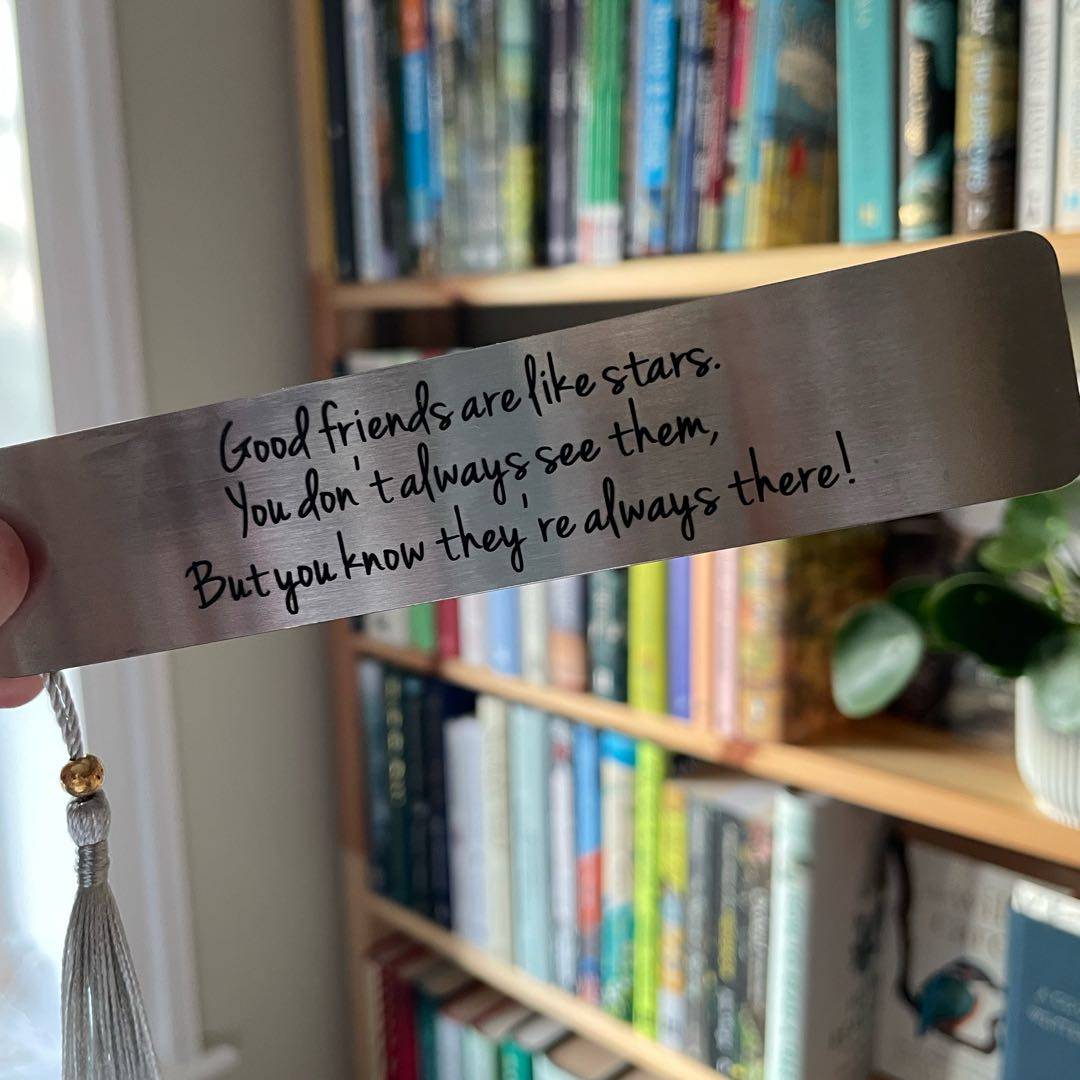 Good friends are like stars.
You don't always see them,
But you know they're always there!